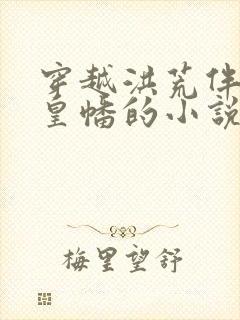 穿越洪荒伴
皇幡的小說
梅里望舒